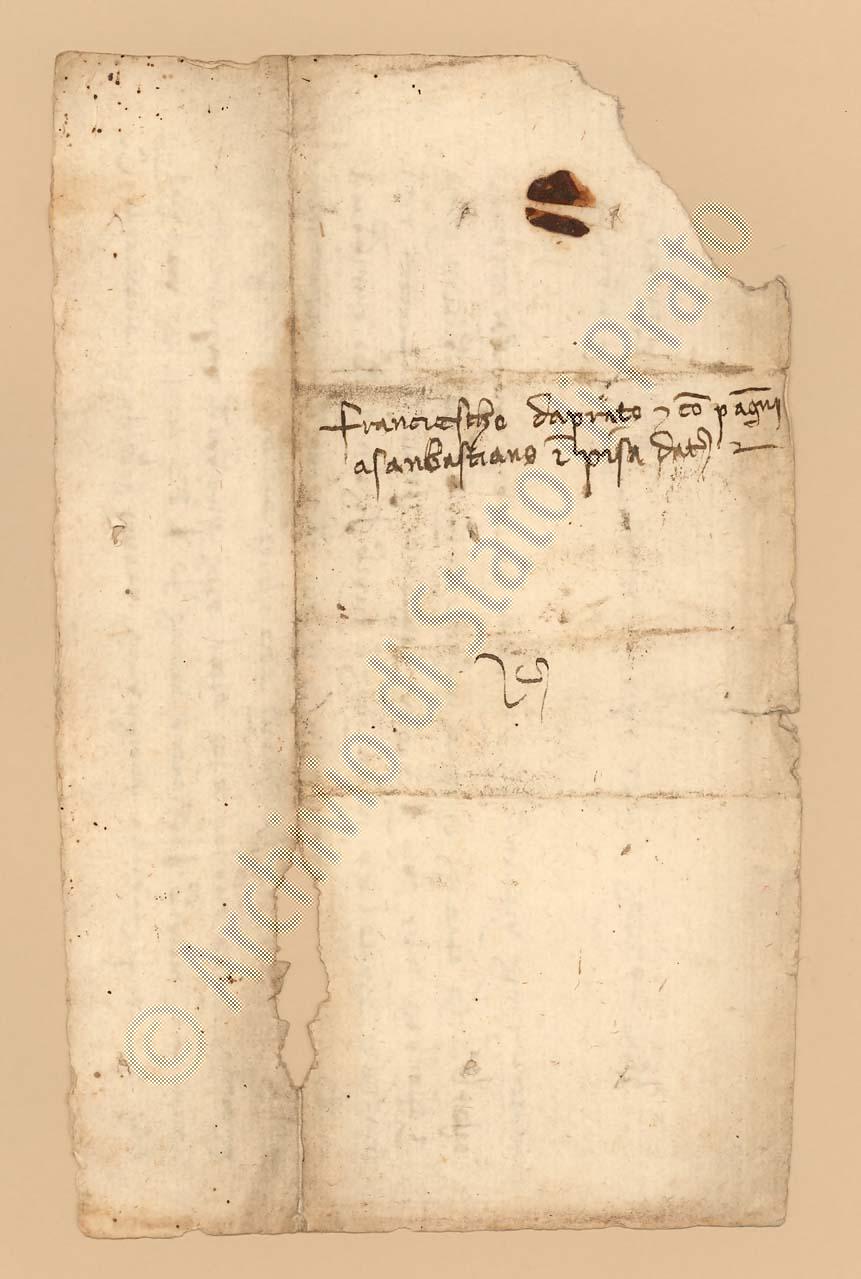 franciescho daprato e co pagni
asanbastiano i pisa dat
© Archivio di Stato di Prato